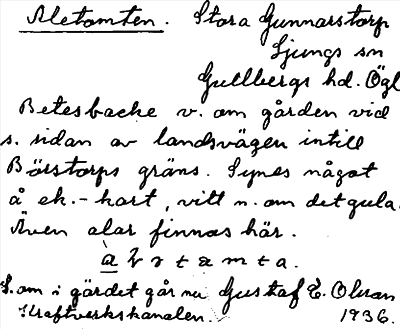 Aletomten. Stora Gunnarstorp
Ljungs sn
Gullbergs hd. Ögl
Betesbacke v. om gården vid
s. sidan av landsvägen intill
Börstorps gräns. Synes något
å ek.-kart, vitt n. om det gula.
Även alar finnas här.
S. om i gärdet går nu Gustaf E. Olsson
Kraftverkskanalen. 1936.